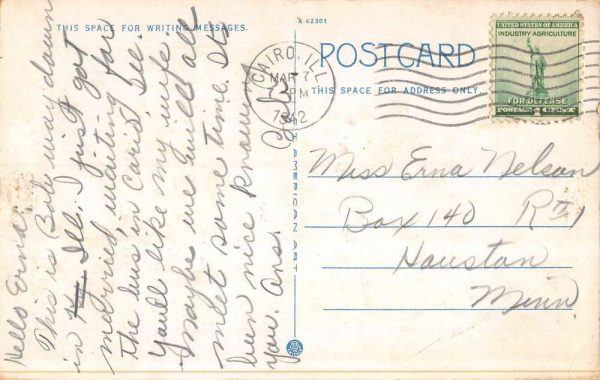 THIS SPACE FOR WRITING MESSAGES.
A-82301
POSTCARD
THIS SPACE FOR ADDRESS ONLY.
CAIRO, ILL.
MAR 7
PM
1942
UNITED STATES OF AMERICA
INDUSTRY-AGRICULTURE
FOR DEFENSE
POSTAGE 1 CENT
AMERICAN ART
Hello Erna:
This is Bob way down
in Ill. I just got
married, waiting for
the bus in Cairo Ill.
You'd like my wife
Maybe we will all
meet some time. It's
been nice knowing
you. Ans.
Bob
Miss Erna Nelson
Box 140 Rt 1
Houston
Minn